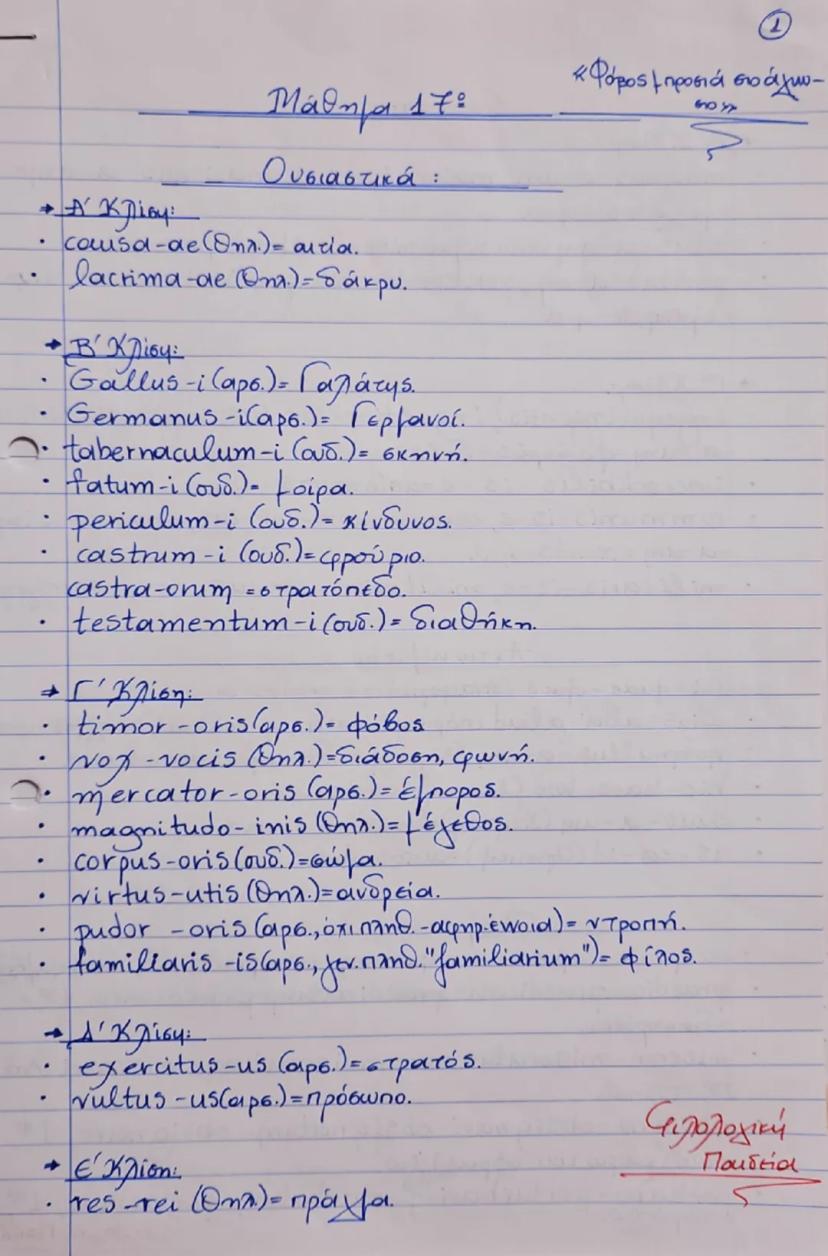 1
«Φόβος μπροστά στο άγνω-
στο»
Μάθημα 17º
Ουσιαστικά:
→ Α' Κλίση:
· causa-ae (θηλ.)= αιτία.
· lacrima-ae (θηλ.)= δάκρυ.
→ Β' Κλίση:
· Gallus-i (αρσ.)= Γαλάτης.
· Germanus-i (αρσ.)= Γερμανοί.
· tabernaculum-i (ουδ.)= σκηνή.
· fatum-i (ουδ.)= μοίρα.
· periculum-i (ουδ.)= κίνδυνος.
· castrum-i (ουδ.)= φρούριο.
castra-orum = στρατόπεδο.
· testamentum-i (ουδ.)= διαθήκη.
→ Γ' Κλίση:
· timor-oris (αρσ.)= φόβος
· vox-vocis (θηλ.)= διάδοση, φωνή.
· mercator-oris (αρσ.)= έμπορος.
· magnitudo-inis (θηλ.)= μέγεθος.
· corpus-oris (ουδ.)= σώμα.
· virtus-utis (θηλ.)= ανδρεία.
· pudor -oris (αρσ., όχι πληθ.-αφηρ. έννοια)= ντροπή.
· familiaris -is (αρσ., γεν. πληθ. "familiarium")= φίλος.
→ Δ' Κλίση:
· exercitus-us (αρσ.)= στρατός.
· vultus-us (αρσ.)= πρόσωπο.
→ Ε' Κλίση:
· res-rei (θηλ)= πράγμα.
Φιλολογική
Παιδεία